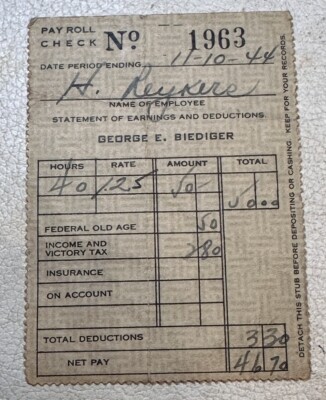 PAY ROLL
CHECK No 1963
DATE PERIOD ENDING 11-10-44
H. Reykers
NAME OF EMPLOYEE
STATEMENT OF EARNINGS AND DEDUCTIONS
GEORGE E. BIEDIGER
HOURS RATE AMOUNT TOTAL
40 1.25 50-
50 00
FEDERAL OLD AGE 50
INCOME AND
VICTORY TAX 2 80
INSURANCE
ON ACCOUNT
TOTAL DEDUCTIONS 3 30
NET PAY 46 70
DETACH THIS STUB BEFORE DEPOSITING OR CASHING KEEP FOR YOUR RECORDS.